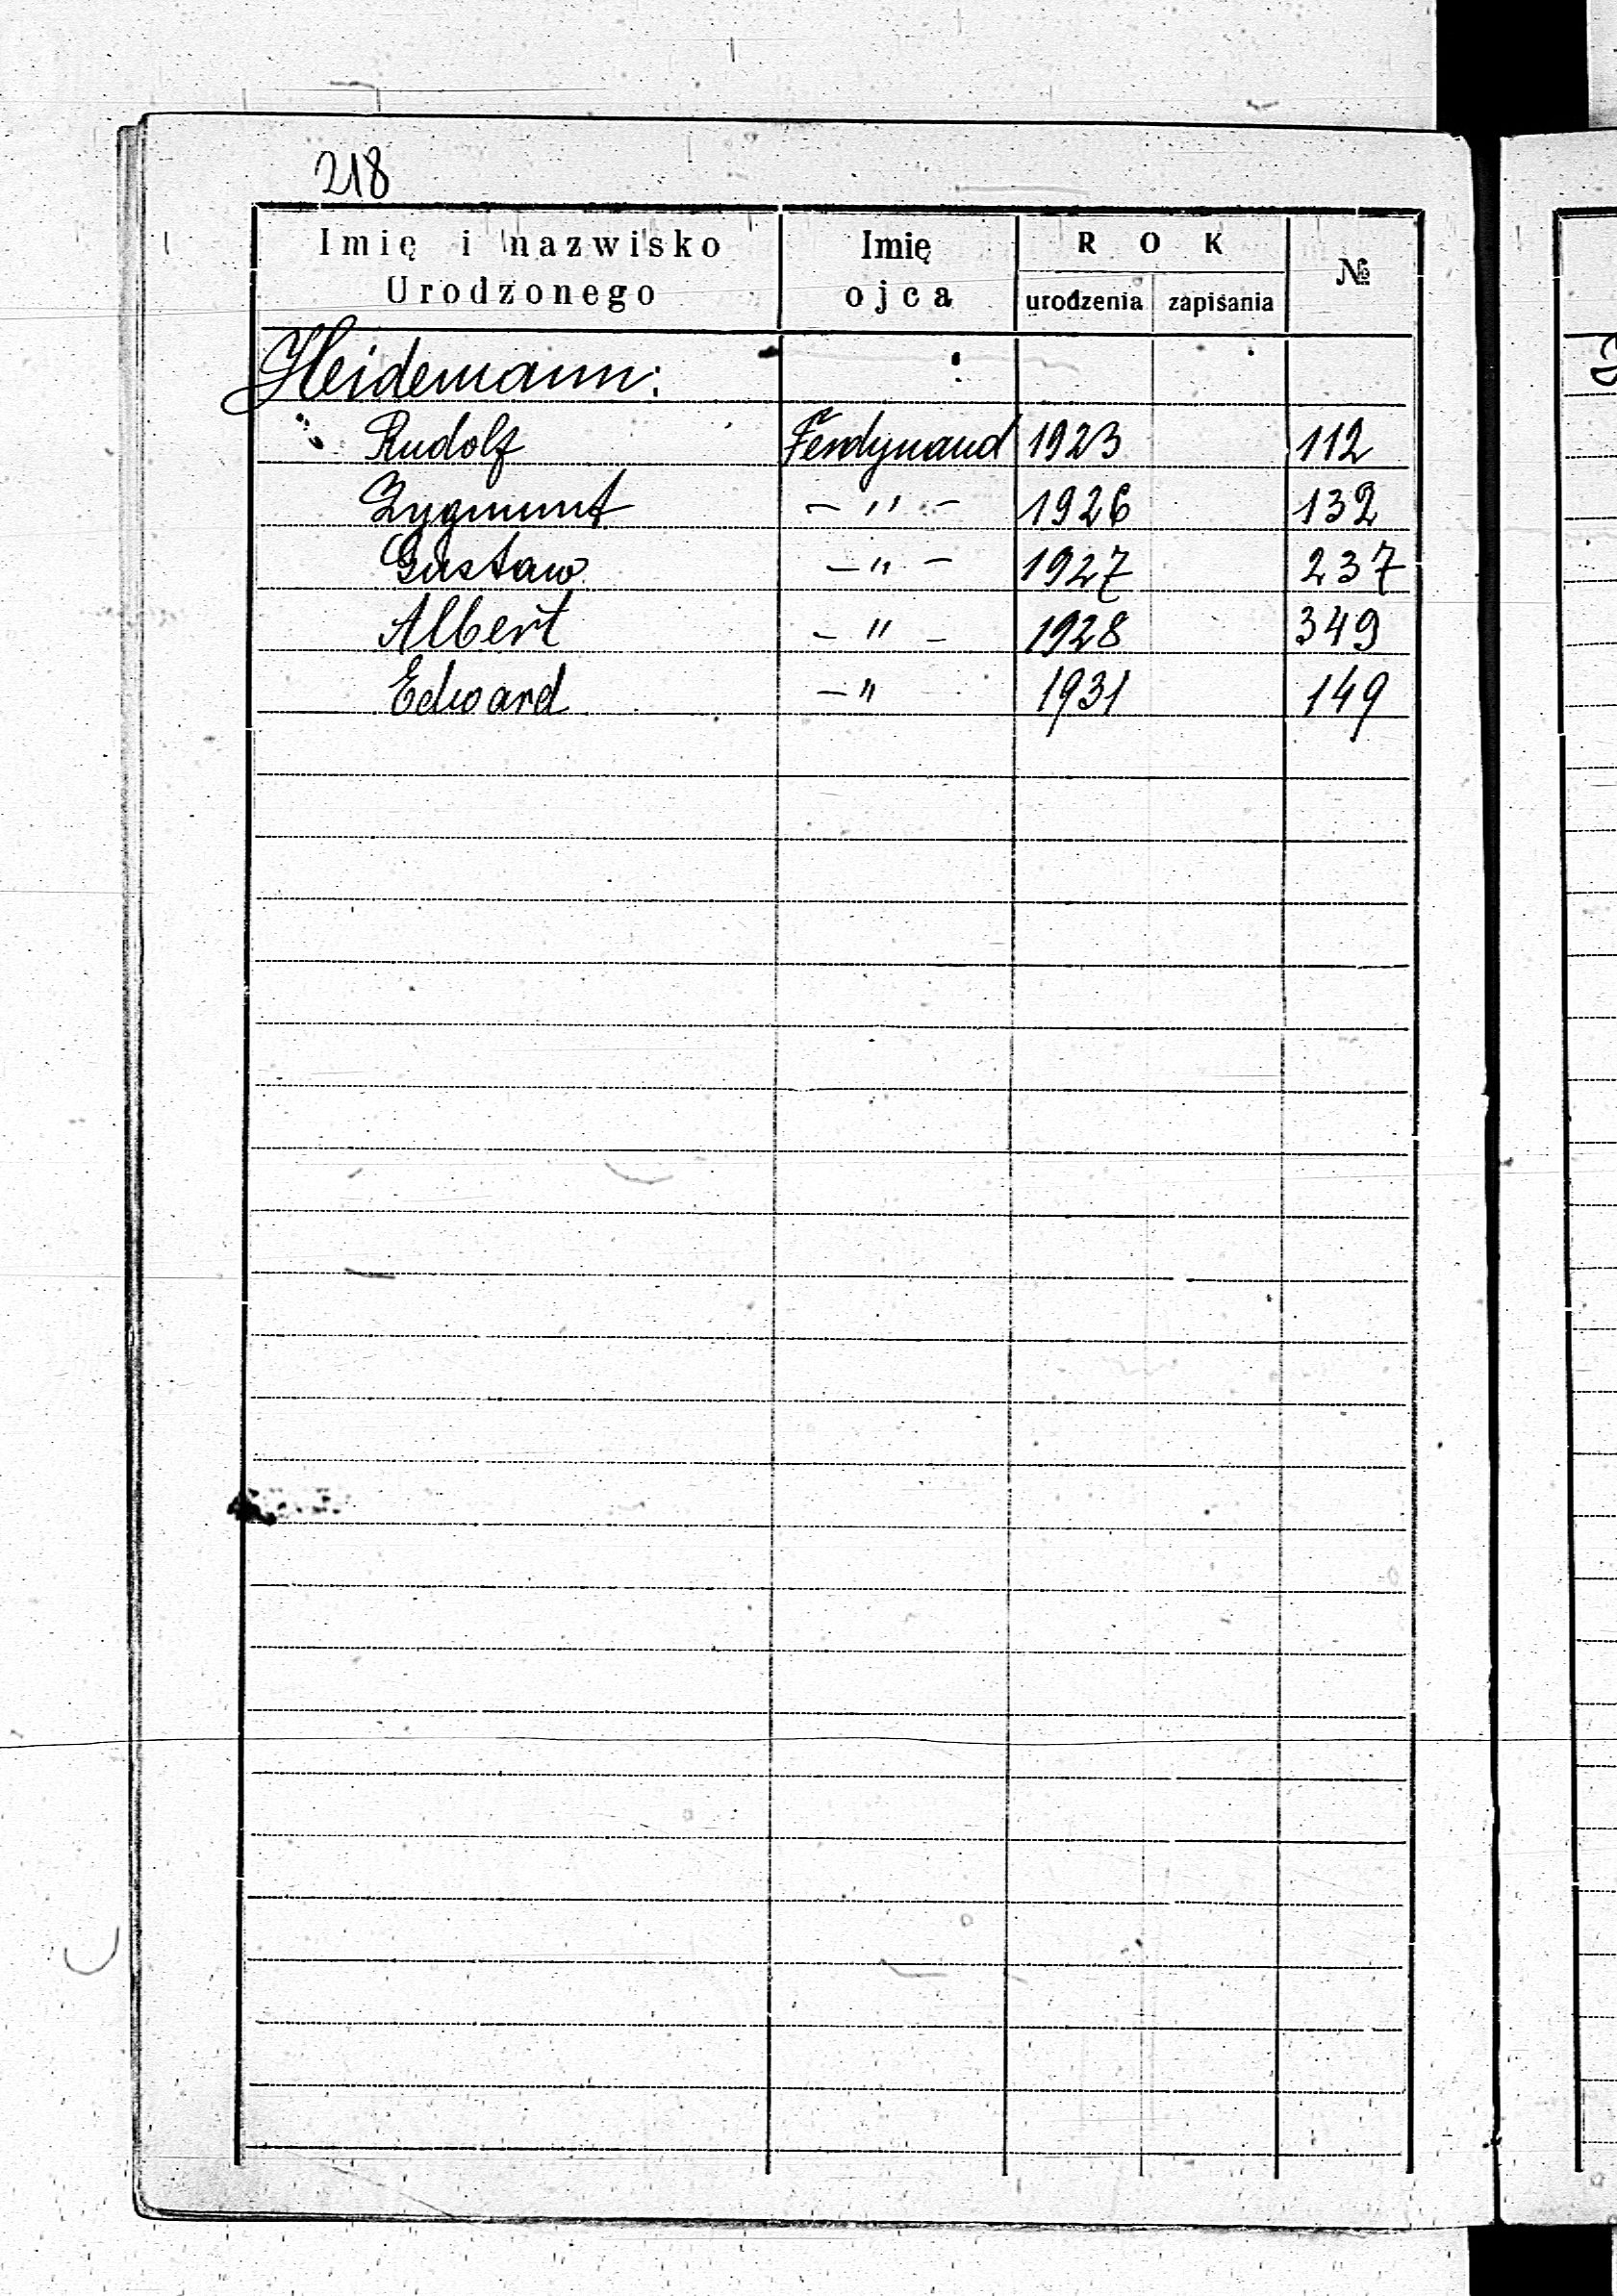 218
Imię i nazwisko Urodzonego Imię ojca ROK urodzenia zapisania №
Heidemann:
Rudolf Ferdynand 1923 112
Zygmunt – " – 1926 132
Gustaw – " – 1927 237
Albert – " – 1928 349
Edward – " 1931 149